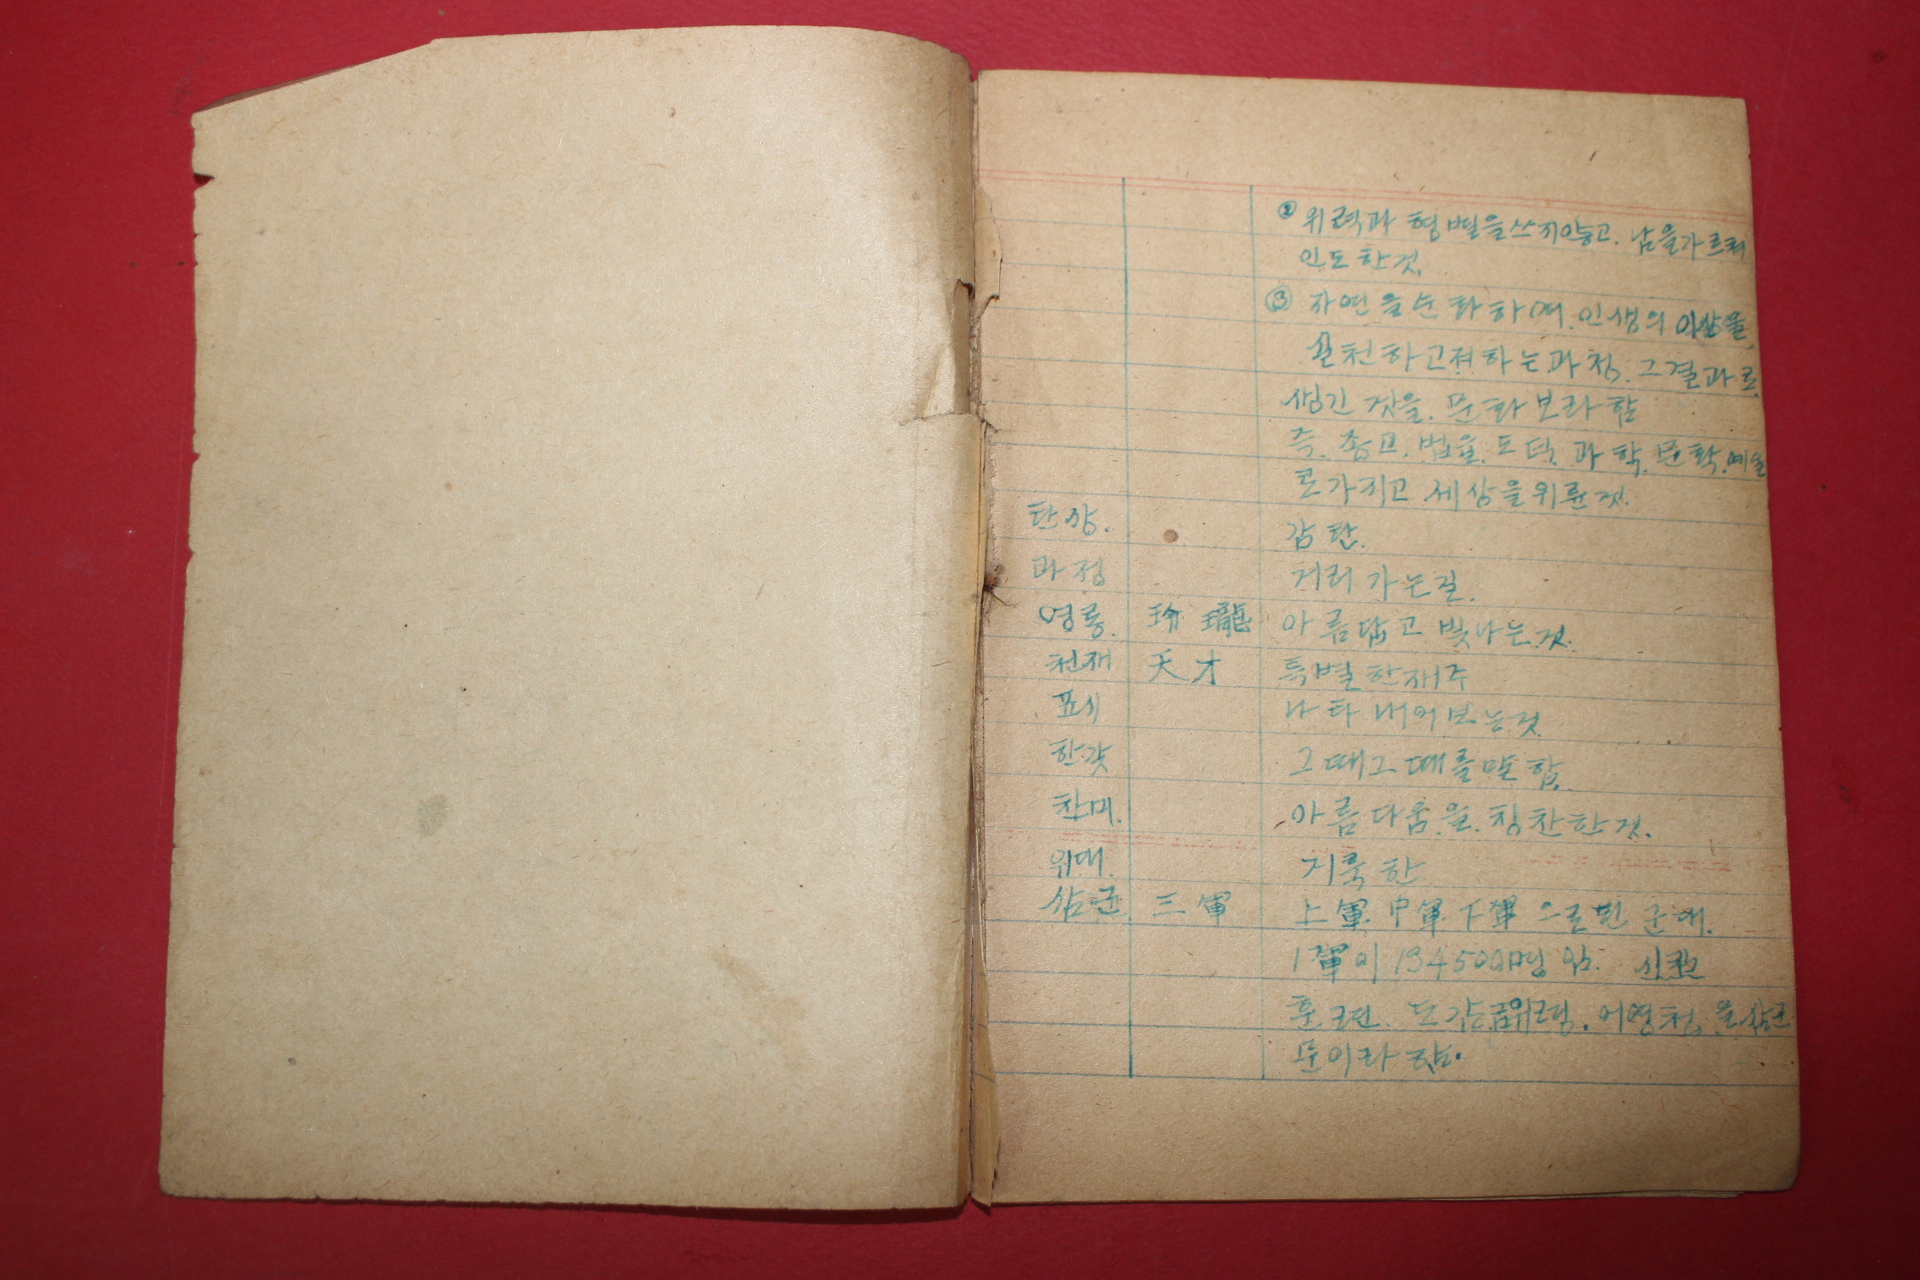 ② 위력과 형벌을쓰지안능고. 남을가르쳐
인도한것.
③ 자연을순화하여.인생의 이상을,
실천하고저하는과정. 그결과로
생긴 것을. 문화보라함
즉. 종교. 법율. 도덕. 과학. 문학.예술
로가지고 세상을위한것.
탄상. 감탄.
과정 거리 가는길.
영롱. 玲瓏 아름답고 빛나는것.
천재 天才 특별한재주
표시 나타내어보는것
한갖 그때그때를말함.
찬미. 아름다움.을.칭찬한것.
위대. 거룩한
삼군 三軍 上軍. 中軍. 下軍 으로된 군대.
1軍이 134500명임.
훈련. 도감금위 어영청.을삼군
문이라 함.